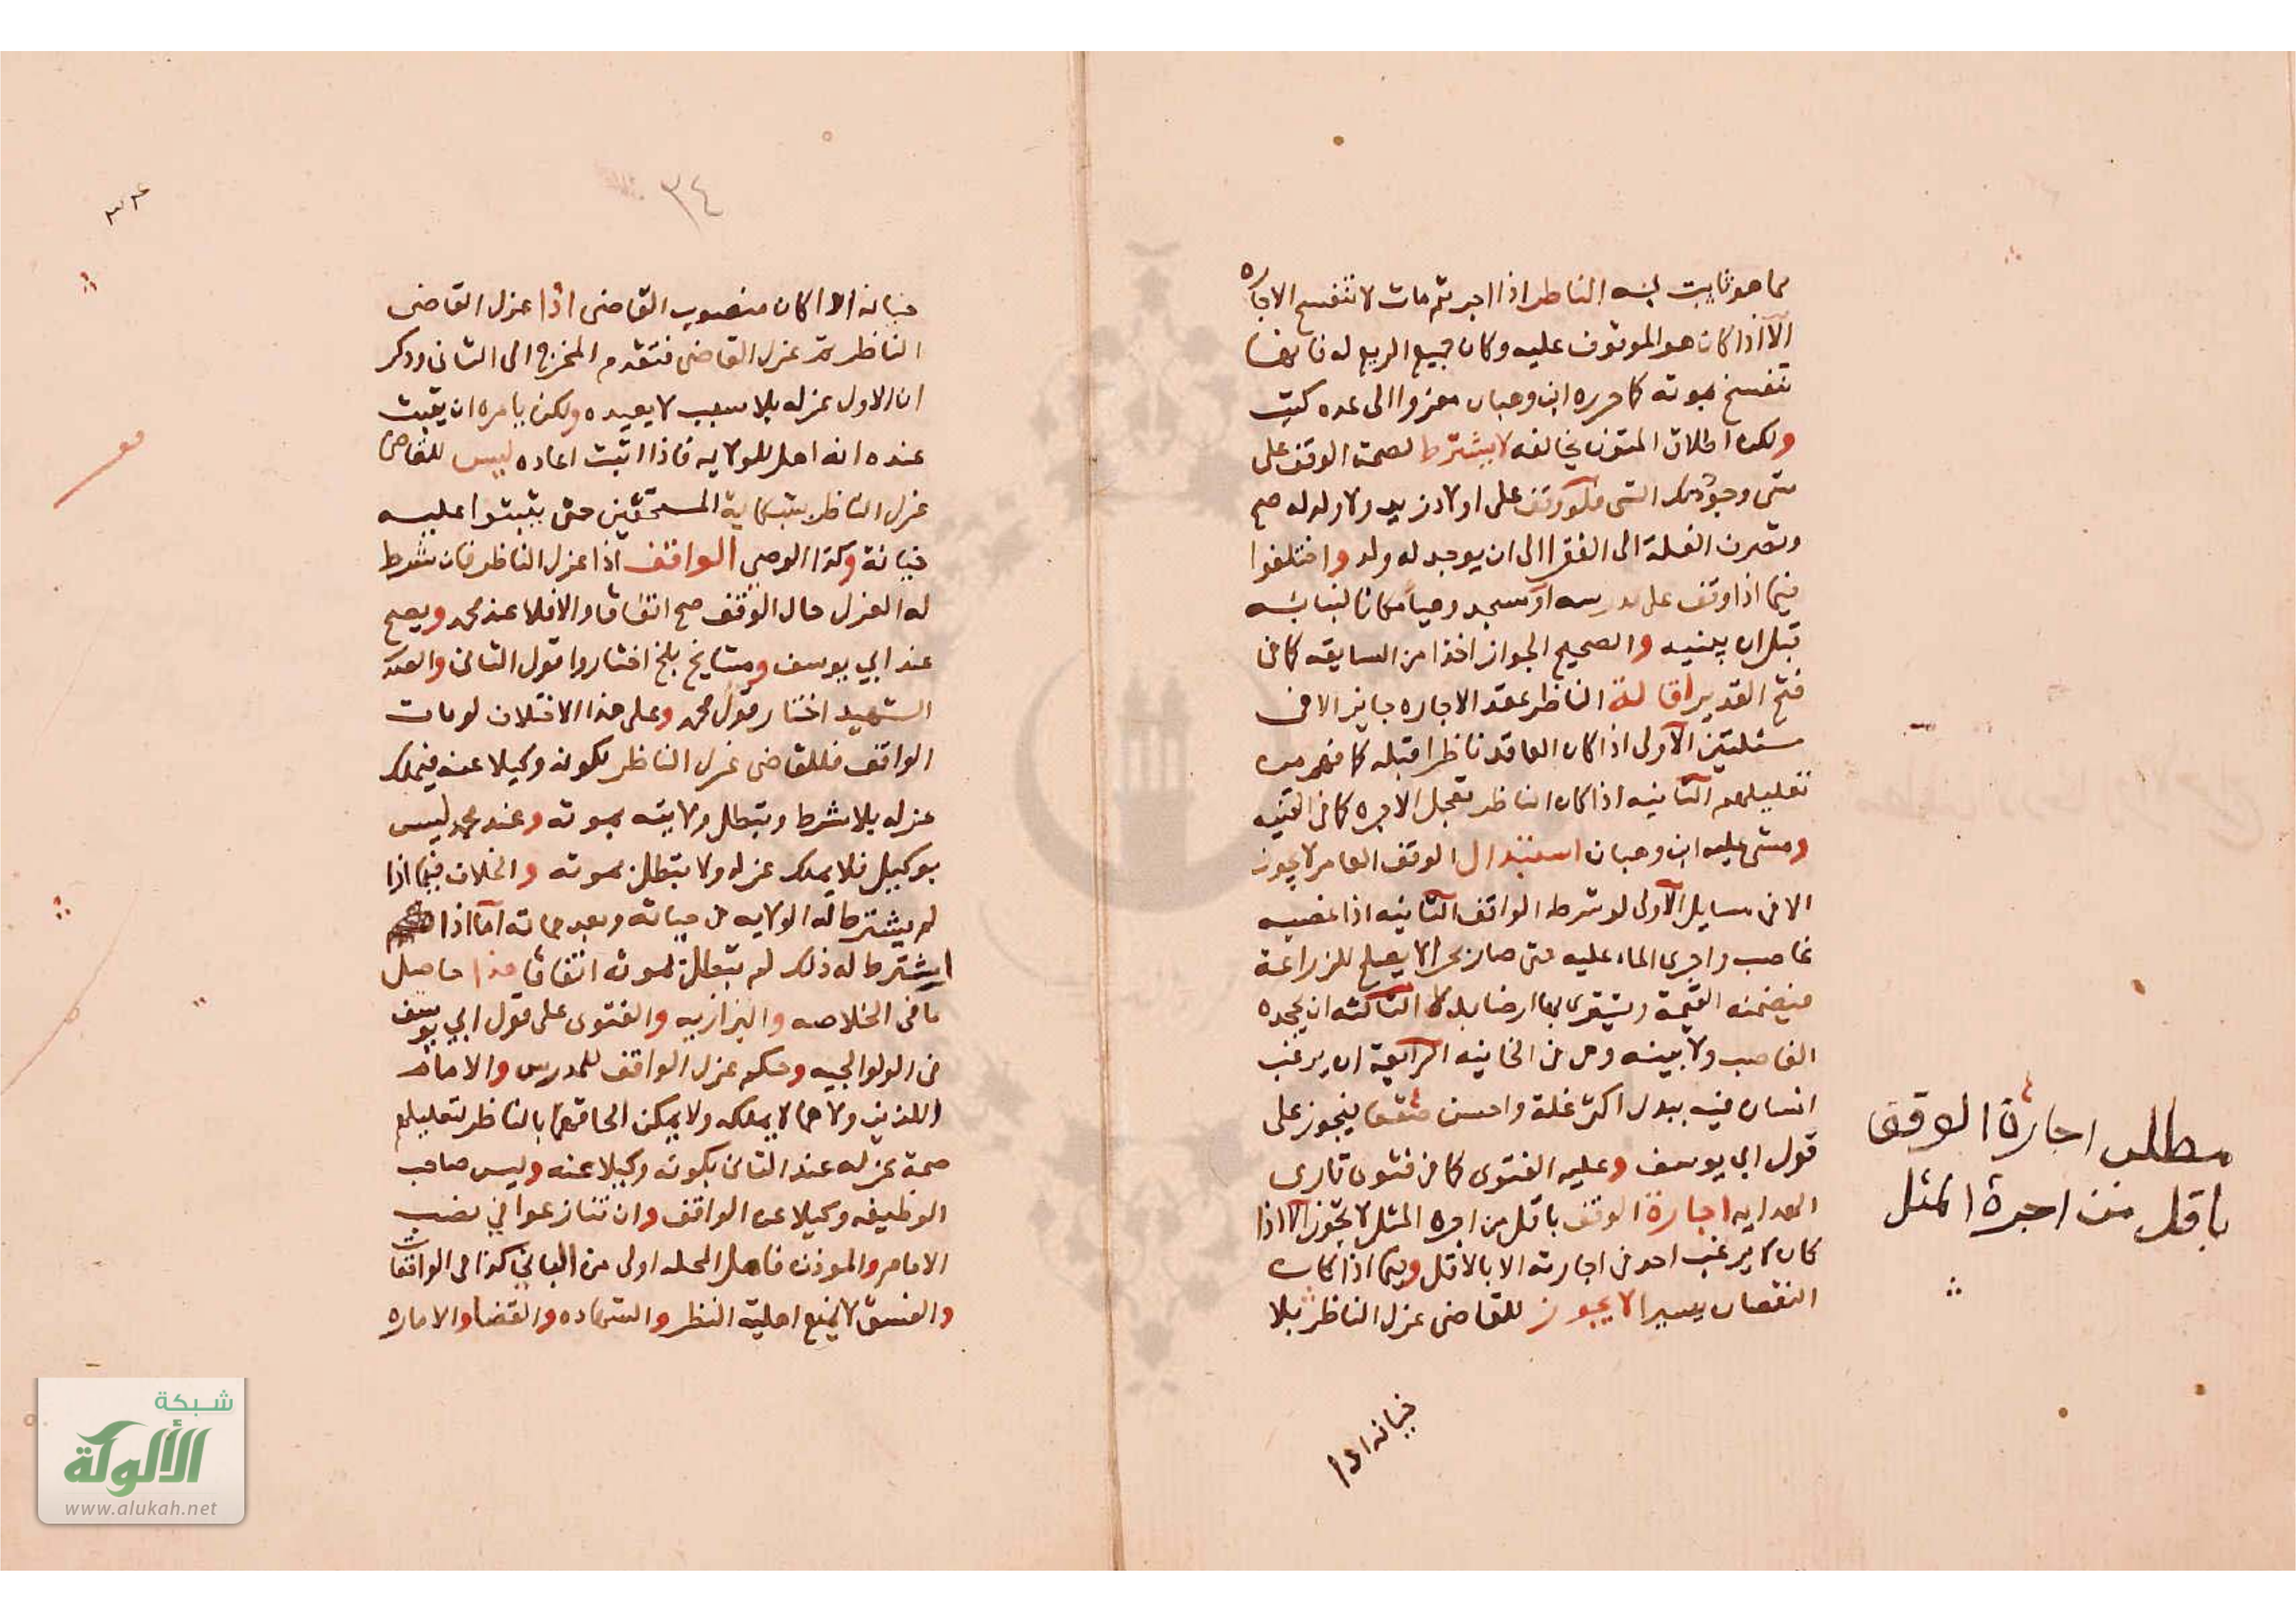 مما هو ثابت لنسه الناظر اذا اجر ثم مات لا تنفسخ الاجاره
الا اذا كان هو الموقوف عليه وكان جميع الريع له فانها
تنفسخ بموته كما حرره ابن وهبان معزوا الى عده كتب
ولكن اطلاق المتون يخالفه لا يشترط لصحة الوقف على
شى وجود ذلك الشى فلو وقف على اولاد زيد ولا ولد له صح
وتصرف الغلة الى الفقرا الى ان يوجد له ولد واختلفوا
فيما اذا وقف على مدرسه او مسجد وهيأ مكانا لبنائه
قبل ان يبنيه والصحيح الجواز اخذا من السابقه كما فى
فتح القدير اقالة الناظر عقد الاجاره جايز الا فى
مسئلتين الاولى اذا كان العاقد ناظرا قبله كما فهم من
تعليلهم الثانيه اذا كان الناظر تعجل الاجره كما فى القنيه
ومشى عليه ابن وهبان استبدال الوقف العامر لا يجوز
الا فى مسايل الاولى لو شرطه الواقف الثانيه اذا غصبه
غاصب واجرى الماء عليه حتى صار بحرا لا يصلح للزراعة
فيضمنه القيمة ويشترى بها ارضا بدلا الثالثه ان يجحده
الغاصب ولا بينه وهى فى الخانيه الرابعة ان يرغب
انسان فيه ببدل اكثر غلة واحسن صقعا فيجوز على
قول ابي يوسف وعليه الفتوى كما فى فتوى قارى
الهدايه اجارة الوقف باقل من اجره المثل لا تجوز الا اذا
كان لا يرغب احد فى اجارته الا بالاقل وفيما اذا كان
النقصان يسيرا لا يجوز للقاضى عزل الناظر بلا
خيانه اذا
مطلب اجارة الوقف
باقل من اجرة المثل
٣٤
٣٤
خيانه اذا كان منصوب القاضى اذا عزل القاضى
الناظر ثم عزل القاضى فتقدم المخرج الى الثانى وذكر
ان الاول عزله بلا سبب لا يعيده ولكن يامره ان يثبت
عنده انه اهل للولايه فاذا اثبت اعاده ليس للقاضى
عزل الناظر بشكاية المستحقين حتى يثبتوا عليه
خيانة وكذا الوصي الواقف اذا عزل الناظر فان شرط
له العزل حال الوقف صح اتفاقا والا فلا عند محمد ويصح
عند ابي يوسف ومشايخ بلخ اختاروا قول الثانى والصدر
الشهيد اختار قول محمد وعلى هذا الاختلاف لو مات
الواقف فللقاضى عزل الناظر لكونه وكيلا عنه فيملك
عزله بلا شرط وتبطل ولايته بموته وعند محمد ليس
بوكيل فلا يملك عزله ولا تبطل بموته والخلاف فيما اذا
لم يشترط له الولايه فى حياته وبعد مماته اما اذا
اشترط له ذلك لم تبطل بموته اتفاقا هذا حاصل
ما فى الخلاصه والبزازيه والفتوى على قول ابي يوسف
فى الولوالجيه وحكم عزل الواقف للمدرس والامام
اللذين ولاهما لا يملكه ولا يمكن الحاقهما بالناظر لتعليلهم
صحة عزله عند الثانى بكونه وكيلا عنه وليس صاحب
الوظيفه وكيلا عن الواقف وان تنازعوا في نصب
الامام والموذن فاهل المحله اولى من البانى كذا فى الواقعات
والفسق لا يمنع اهلية النظر والشهاده والقضا والاماره
شبكة
الألوكة
www.alukah.net